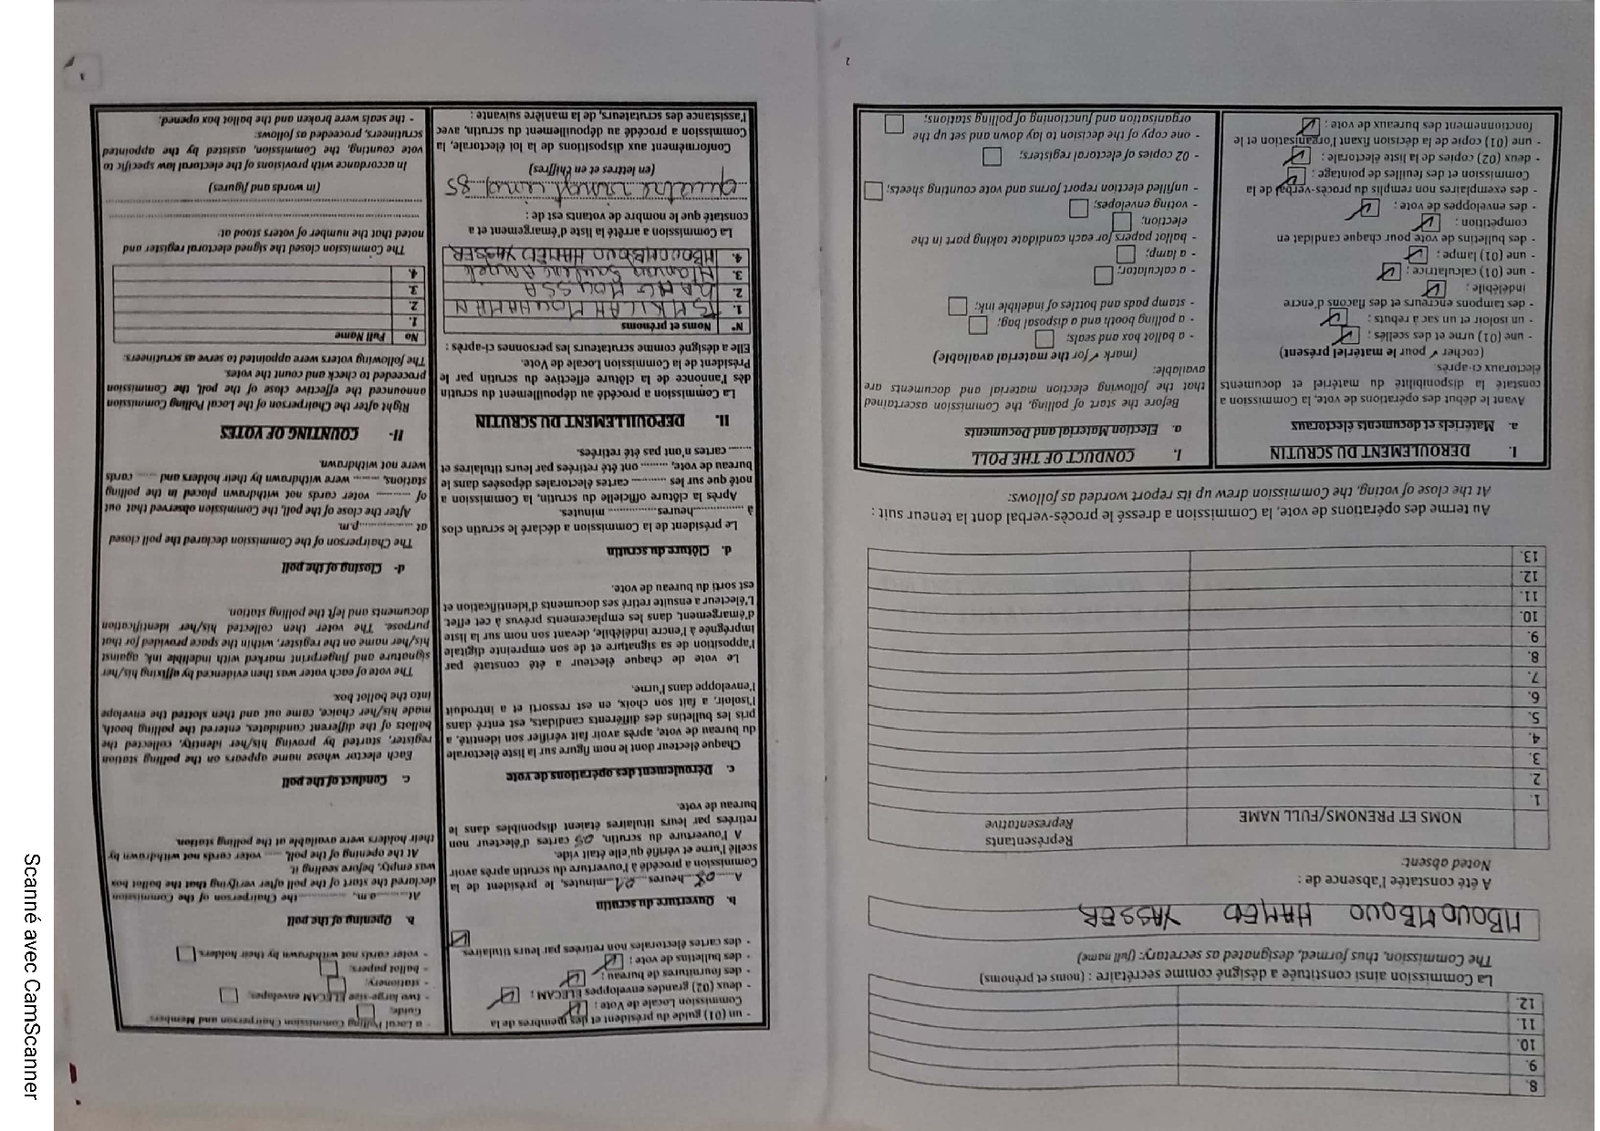 8.
9.
10.
11.
12.
La Commission ainsi constituée a désigné comme secrétaire : (noms et prénoms)
The Commission, thus formed, designated as secretary: (full name)
MBOUOMBOUO HAMED YASSER
A été constatée l'absence de :
Noted absent:
NOMS ET PRENOMS/FULL NAME
Représentants
Representative
1.
2.
3.
4.
5.
6.
7.
8.
9.
10.
11.
12.
13.
Au terme des opérations de vote, la Commission a dressé le procès-verbal dont la teneur suit :
At the close of voting, the Commission drew up its report worded as follows:
I. DEROULEMENT DU SCRUTIN
a. Matériels et documents électoraux
Avant le début des opérations de vote, la Commission a
constaté la disponibilité du matériel et documents
électoraux ci-après
(cocher ✓ pour le matériel présent)
- une (01) urne et des scellés :
- un isoloir et un sac à rebuts :
- des tampons encreurs et des flacons d'encre
indélébile :
- une (01) calculatrice :
- une (01) lampe :
- des bulletins de vote pour chaque candidat en
compétition :
- des enveloppes de vote :
- des exemplaires non remplis du procès-verbal de la
Commission et des feuilles de pointage :
- deux (02) copies de la liste électorale :
- une (01) copie de la décision fixant l'organisation et le
fonctionnement des bureaux de vote :
I. CONDUCT OF THE POLL
a. Election Material and Documents
Before the start of polling, the Commission ascertained
that the following election material and documents are
available:
(mark ✓ for the material available)
- a ballot box and seals;
- a polling booth and a disposal bag;
- stamp pads and bottles of indelible ink;
- a calculator;
- a lamp;
- ballot papers for each candidate taking part in the
election;
- voting envelopes;
- unfilled election report forms and vote counting sheets;
- 02 copies of electoral registers;
- one copy of the decision to lay down and set up the
organisation and functioning of polling stations;
2
- un (01) guide du président et des membres de la
Commission Locale de Vote :
- deux (02) grandes enveloppes ELECAM :
- des fournitures de bureau :
- des bulletins de vote :
- des cartes électorales non retirées par leurs titulaires
b. Ouverture du scrutin
A 08 heures 01 minutes, le président de la
Commission a procédé à l'ouverture du scrutin après avoir
scellé l'urne et vérifié qu'elle était vide.
A l'ouverture du scrutin, 05 cartes d'électeur non
retirées par leurs titulaires étaient disponibles dans le
bureau de vote.
c. Déroulement des opérations de vote
Chaque électeur dont le nom figure sur la liste électorale
du bureau de vote, après avoir fait vérifier son identité, a
pris les bulletins des différents candidats, est entré dans
l'isoloir, a fait son choix, en est ressorti et a introduit
l'enveloppe dans l'urne.
Le vote de chaque électeur a été constaté par
l'apposition de sa signature et de son empreinte digitale
imprégnée à l'encre indélébile, devant son nom sur la liste
d'émargement, dans les emplacements prévus à cet effet.
L'électeur a ensuite retiré ses documents d'identification et
est sorti du bureau de vote.
d. Clôture du scrutin
Le président de la Commission a déclaré le scrutin clos
à ..........heures.......... minutes.
Après la clôture officielle du scrutin, la Commission a
noté que sur les ......... cartes électorales déposées dans le
bureau de vote, ......... ont été retirées par leurs titulaires et
...... cartes n'ont pas été retirées.
II. DEPOUILLEMENT DU SCRUTIN
La Commission a procédé au dépouillement du scrutin
dès l'annonce de la clôture effective du scrutin par le
Président de la Commission Locale de Vote.
Elle a désigné comme scrutateurs les personnes ci-après :
N° Noms et prénoms
1. MOUHAMAN
2. MOUSSA
3.
4. MBOUOMBOUO HAMED YASSER
La Commission a arrêté la liste d'émargement et a
constaté que le nombre de votants est de :
quatre vingt cinq/ 85
(en lettres et en chiffres)
Conformément aux dispositions de la loi électorale, la
Commission a procédé au dépouillement du scrutin, avec
l'assistance des scrutateurs, de la manière suivante :
- a Local Polling Commission Chairperson and Members
Guide;
- two large-size ELECAM envelopes;
- stationery;
- ballot papers;
- voter cards not withdrawn by their holders.
b. Opening of the poll
At..........a.m, ..........the Chairperson of the Commission
declared the start of the poll after verifying that the ballot box
was empty, before sealing it.
At the opening of the poll, ...... voter cards not withdrawn by
their holders were available at the polling station.
c. Conduct of the poll
Each elector whose name appears on the polling station
register, started by proving his/her identity, collected the
ballots of the different candidates, entered the polling booth,
made his/her choice, came out and then slotted the envelope
into the ballot box.
The vote of each voter was then evidenced by affixing his/her
signature and fingerprint marked with indelible ink, against
his/her name on the register, within the space provided for that
purpose. The voter then collected his/her identification
documents and left the polling station.
d- Closing of the poll
The Chairperson of the Commission declared the poll closed
at ................p.m.
After the close of the poll, the Commission observed that out
of ......... voter cards not withdrawn placed in the polling
stations, ......... were withdrawn by their holders and ...... cards
were not withdrawn.
II- COUNTING OF VOTES
Right after the Chairperson of the Local Polling Commission
announced the effective close of the poll, the Commission
proceeded to check and count the votes.
The following voters were appointed to serve as scrutineers:
No Full Name
1.
2.
3.
4.
The Commission closed the signed electoral register and
noted that the number of voters stood at:
(in words and figures)
In accordance with provisions of the electoral law specific to
vote counting, the Commission, assisted by the appointed
scrutineers, proceeded as follows:
- the seals were broken and the ballot box opened;
3
Scanné avec CamScanner